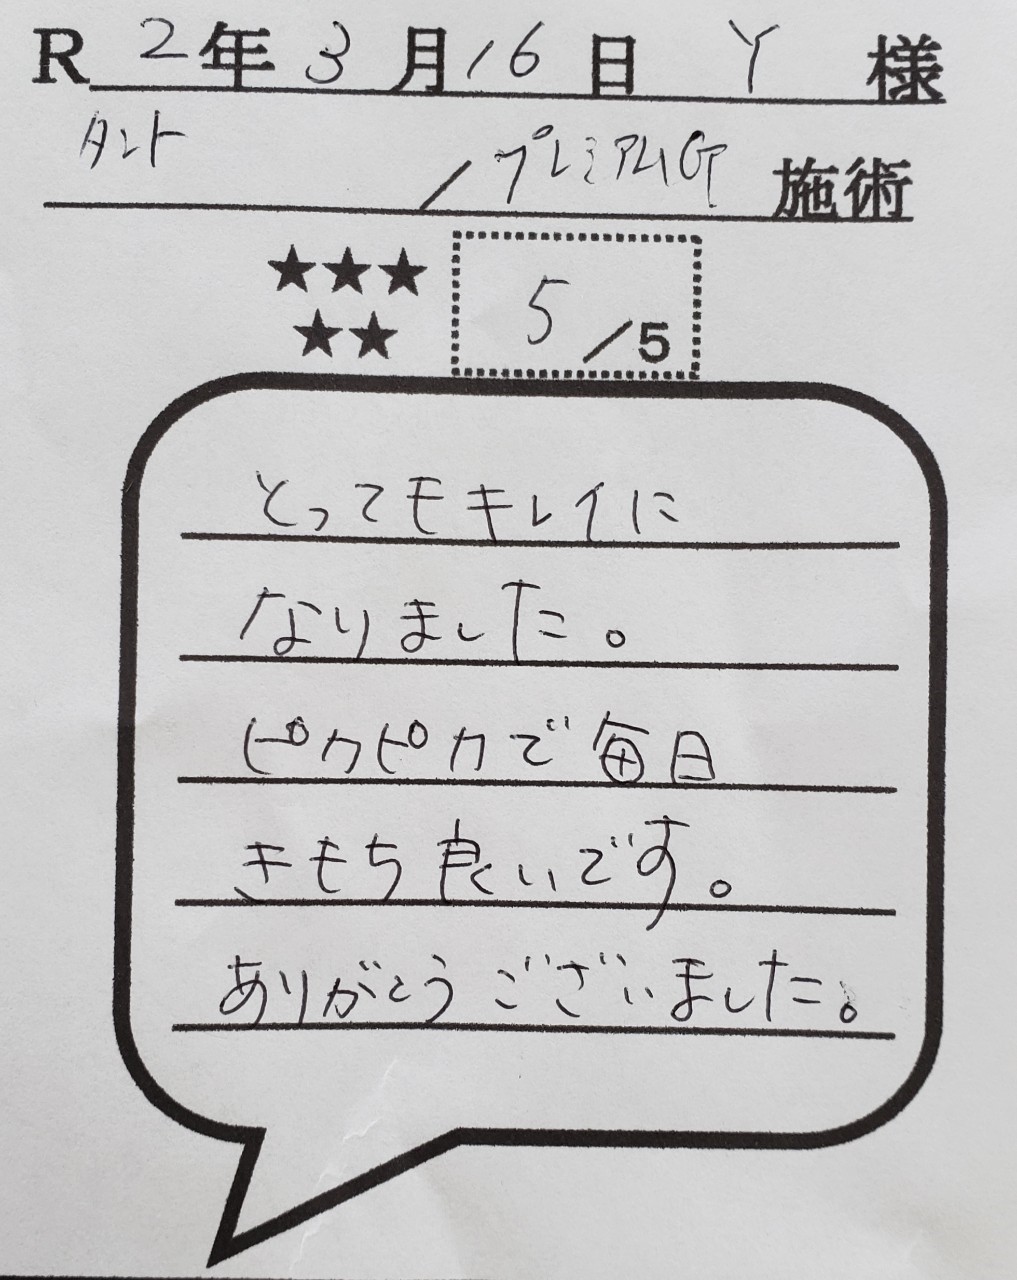 R 2年 3月 16日 Y 様
タント / プレミアムG 施術
★★★
★★
5/5
とってもキレイに
なりました。
ピカピカで毎日
きもち良いです。
ありがとうございました。